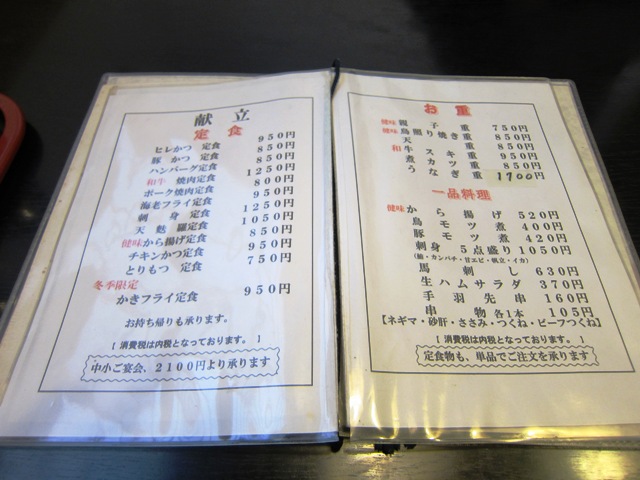 献立
定食
ヒレかつ 定食 950円
豚かつ 定食 850円
ハンバーグ定食 850円
和牛 焼肉定食 1250円
ポーク焼肉定食 800円
海老フライ定食 950円
刺身 定食 1250円
天麩羅定食 1050円
健味から揚げ定食 850円
チキンかつ定食 950円
とりもつ 定食 750円
冬季限定
かきフライ定食 950円
お持ち帰りも承ります。
[ 消費税は内税となっております。 ]
中小ご宴会、2100円より承ります
お重
健味 親子重 750円
健味 鳥照り焼き重 850円
天重 850円
和牛スキ重 950円
煮カツ重 850円
うなぎ重 1900円
一品料理
健味 から揚げ 520円
鳥モツ煮 400円
豚モツ煮 420円
刺身 5点盛り 1050円
(鮪・カンパチ・甘エビ・帆立・イカ)
馬刺し 630円
生ハムサラダ 370円
手羽先串 160円
串物 各1本 105円
【ネギマ・砂肝・ささみ・つくね・ビーフつくね】
[ 消費税は内税となっております。 ]
定食物も、単品でご注文を承ります